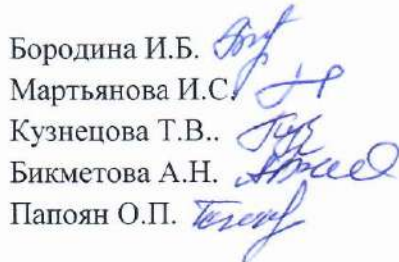 Бородина И.Б.
Мартьянова И.С.
Кузнецова Т.В..
Бикметова А.Н.
Папоян О.П.